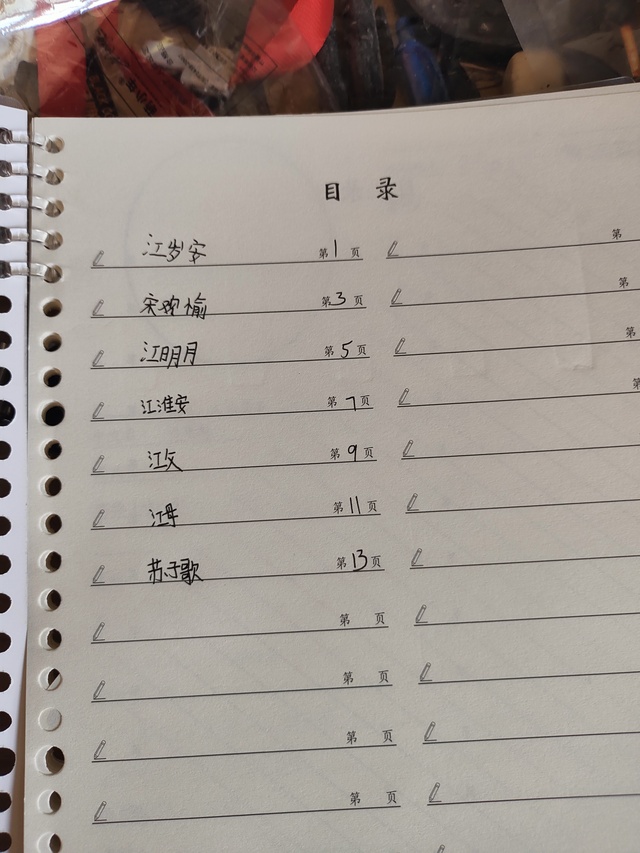 目 录
江岁安 第1页 第
宋晚榆 第3页 第
江明月 第5页 第
江淮安 第7页 第
江父 第9页
江母 第11页
苏子歌 第13页
第 页
第 页
第 页
第 页